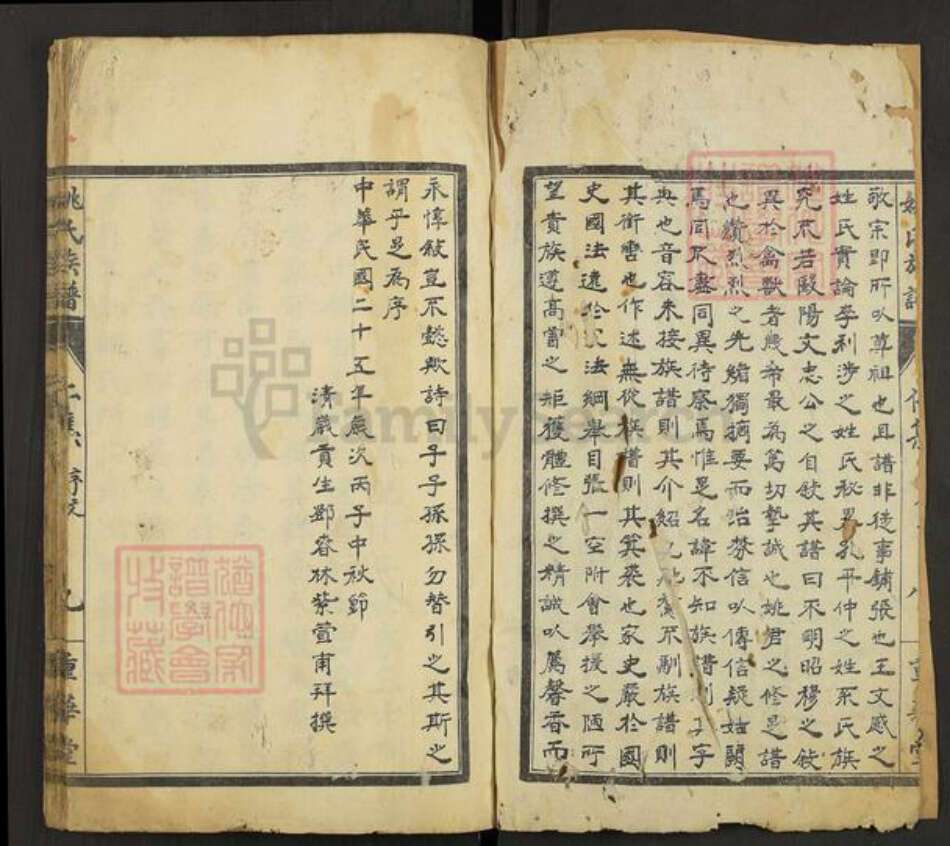 敬宗即所以尊祖也且譜非徒事鋪張也王文感之
姓氏實論李利涉之姓氏秘畧孔平仲之姓系氏族
究不若歐陽文忠公之自敘其譜曰不明昭穆之敘
異於禽獸者幾希最為萬切摯誠也姚君之修是譜
也纘烈烈之先緒獨摘要而治棼信以傳信疑姑闕
焉同不盡同異待察焉惟是名諱不知族譜則其字
典也音容未接族譜則其介紹也 不副族譜則
其衡 也作述無從族譜則其箕裘也家史嚴於國
史國法遠於家法綱舉目張一空附會舉援之陋所
望貴族遵高曾之矩矱體修撰之精誠以薦馨香而
永惇敍豈不懿歟詩曰子子孫孫勿替引之其斯之
謂乎是為序
中華民國二十五年歲次丙子中秋節
清歲貢生鄧春林紫萱甫拜撰
姚氏族譜
序文
九
重華堂
譜學會
收藏
familysearch